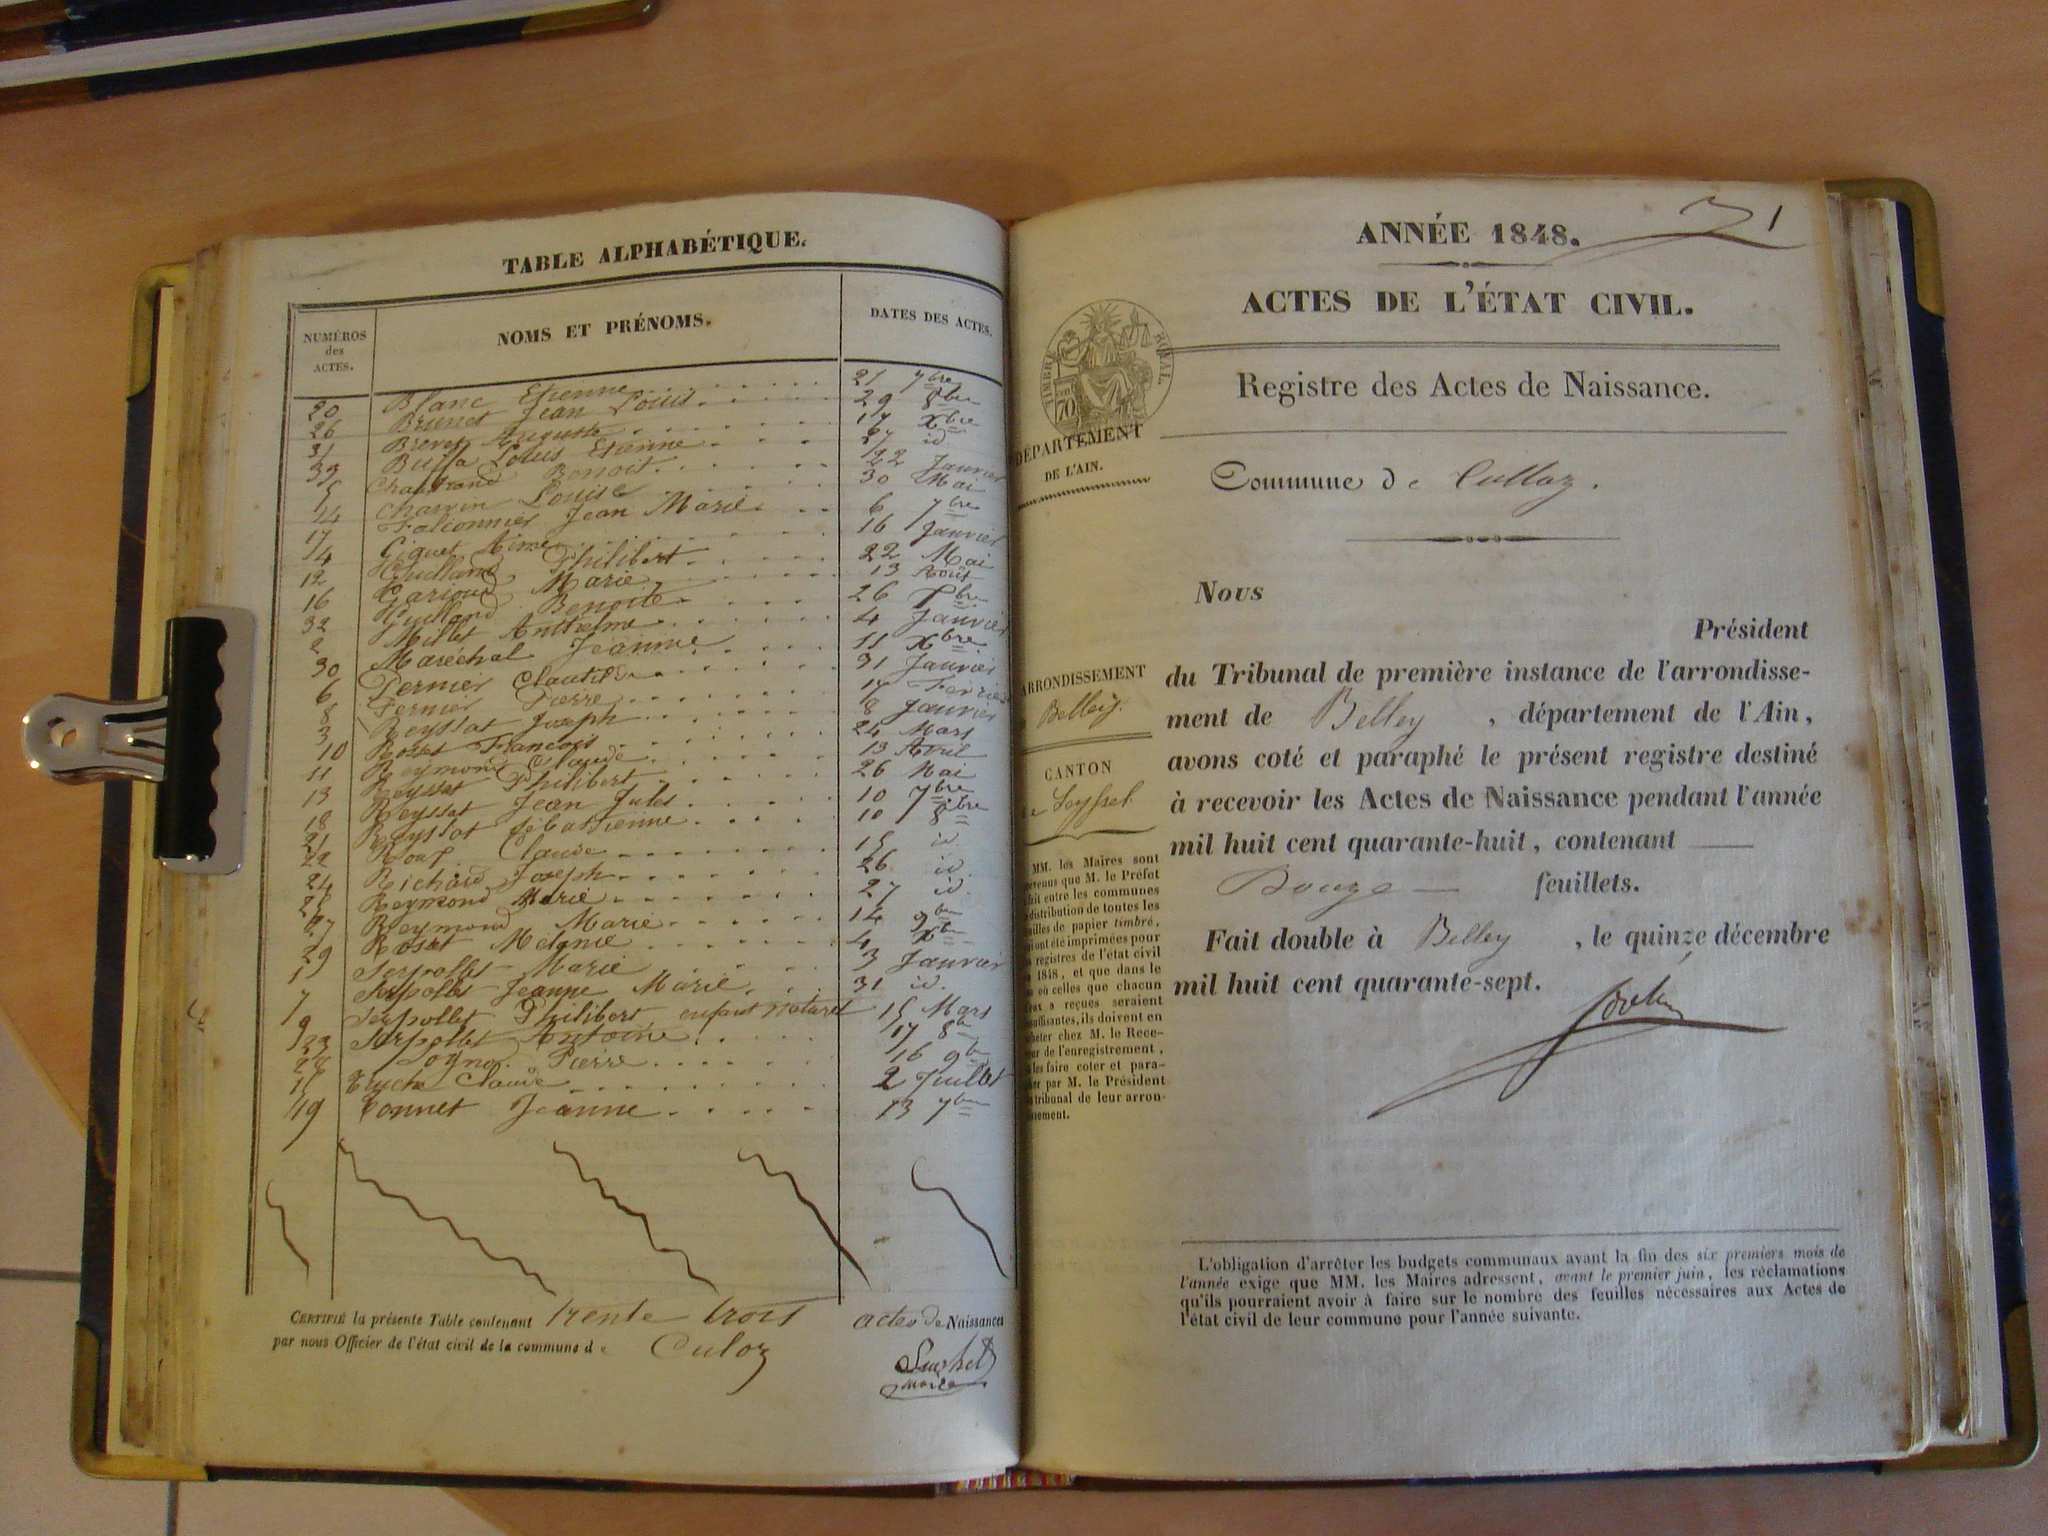 TABLE ALPHABÉTIQUE.
NUMÉROS des ACTES. NOMS ET PRÉNOMS. DATES DES ACTES.
20 Blanc Etienne 21 7bre
26 Brunet Jean Louis 29 8bre
31 Auguste 17 Xbre
33 Louis Etienne 27 id
5 Benoit 22 Janvier
14 Louise 30 Mai
17 Falconnier Jean Marie 6 7bre
4 Aimé 16 Janvier
12 Philibert 22 Mai
16 Marie 13 Août
32 Benoite 26
2 Millet Anthelme 4 Janvier
30 Maréchal Jeanne 11 Xbre
6 Pernier Clautilde 31 Janvier
8 Pernier Pierre 17 Février
3 Reyssat Joseph 8 Janvier
10 François 24 Mars
11 Reymond Claude 13 Avril
13 Reyssat Philibert 26 Mai
18 Reyssat Jean Jules 10 7bre
21 Reyssat 10 8bre
22 Claude 15 id
24 Richard Joseph 26 id.
25 Reymond Marie 27 id
27 Reymond Marie 14 9bre
29 4 Xbre
1 Serpollet Marie 3 Janvier
7 Serpollet Jeanne Marie 31 id.
9 Serpollet Philibert enfant naturel 15 Mars
23 Serpollet Antoine 17 8bre
28 Pierre 16 9bre
15 Claude 2 Juillet
19 Jeanne 13 7bre
CERTIFIÉ la présente Table contenant trente trois actes de Naissances
par nous Officier de l'état civil de la commune de Culoz
Maire
1
ANNÉE 1848.
ACTES DE L'ÉTAT CIVIL.
TIMBRE ROYAL
70
Registre des Actes de Naissance.
DÉPARTEMENT
DE L'AIN.
Commune de Culloz.
Nous
Président
ARRONDISSEMENT
Belley.
CANTON
Seyssel
du Tribunal de première instance de l'arrondisse-
ment de Belley, département de l'Ain,
avons coté et paraphé le présent registre destiné
à recevoir les Actes de Naissance pendant l'année
mil huit cent quarante-huit, contenant
Douze feuillets.
Fait double à Belley, le quinze décembre
mil huit cent quarante-sept.
MM. les Maires sont
que M. le Préfet
entre les communes
distribution de toutes les
de papier timbré,
ont été imprimées pour
registres de l'état civil
1848, et que dans le
où celles que chacun
a reçues seraient
ils doivent en
chez M. le Rece-
de l'enregistrement,
les faire coter et para-
par M. le Président
tribunal de leur arron-
L'obligation d'arrêter les budgets communaux avant la fin des six premiers mois de
l'année exige que MM. les Maires adressent, avant le premier juin, les réclamations
qu'ils pourraient avoir à faire sur le nombre des feuilles nécessaires aux Actes de
l'état civil de leur commune pour l'année suivante.